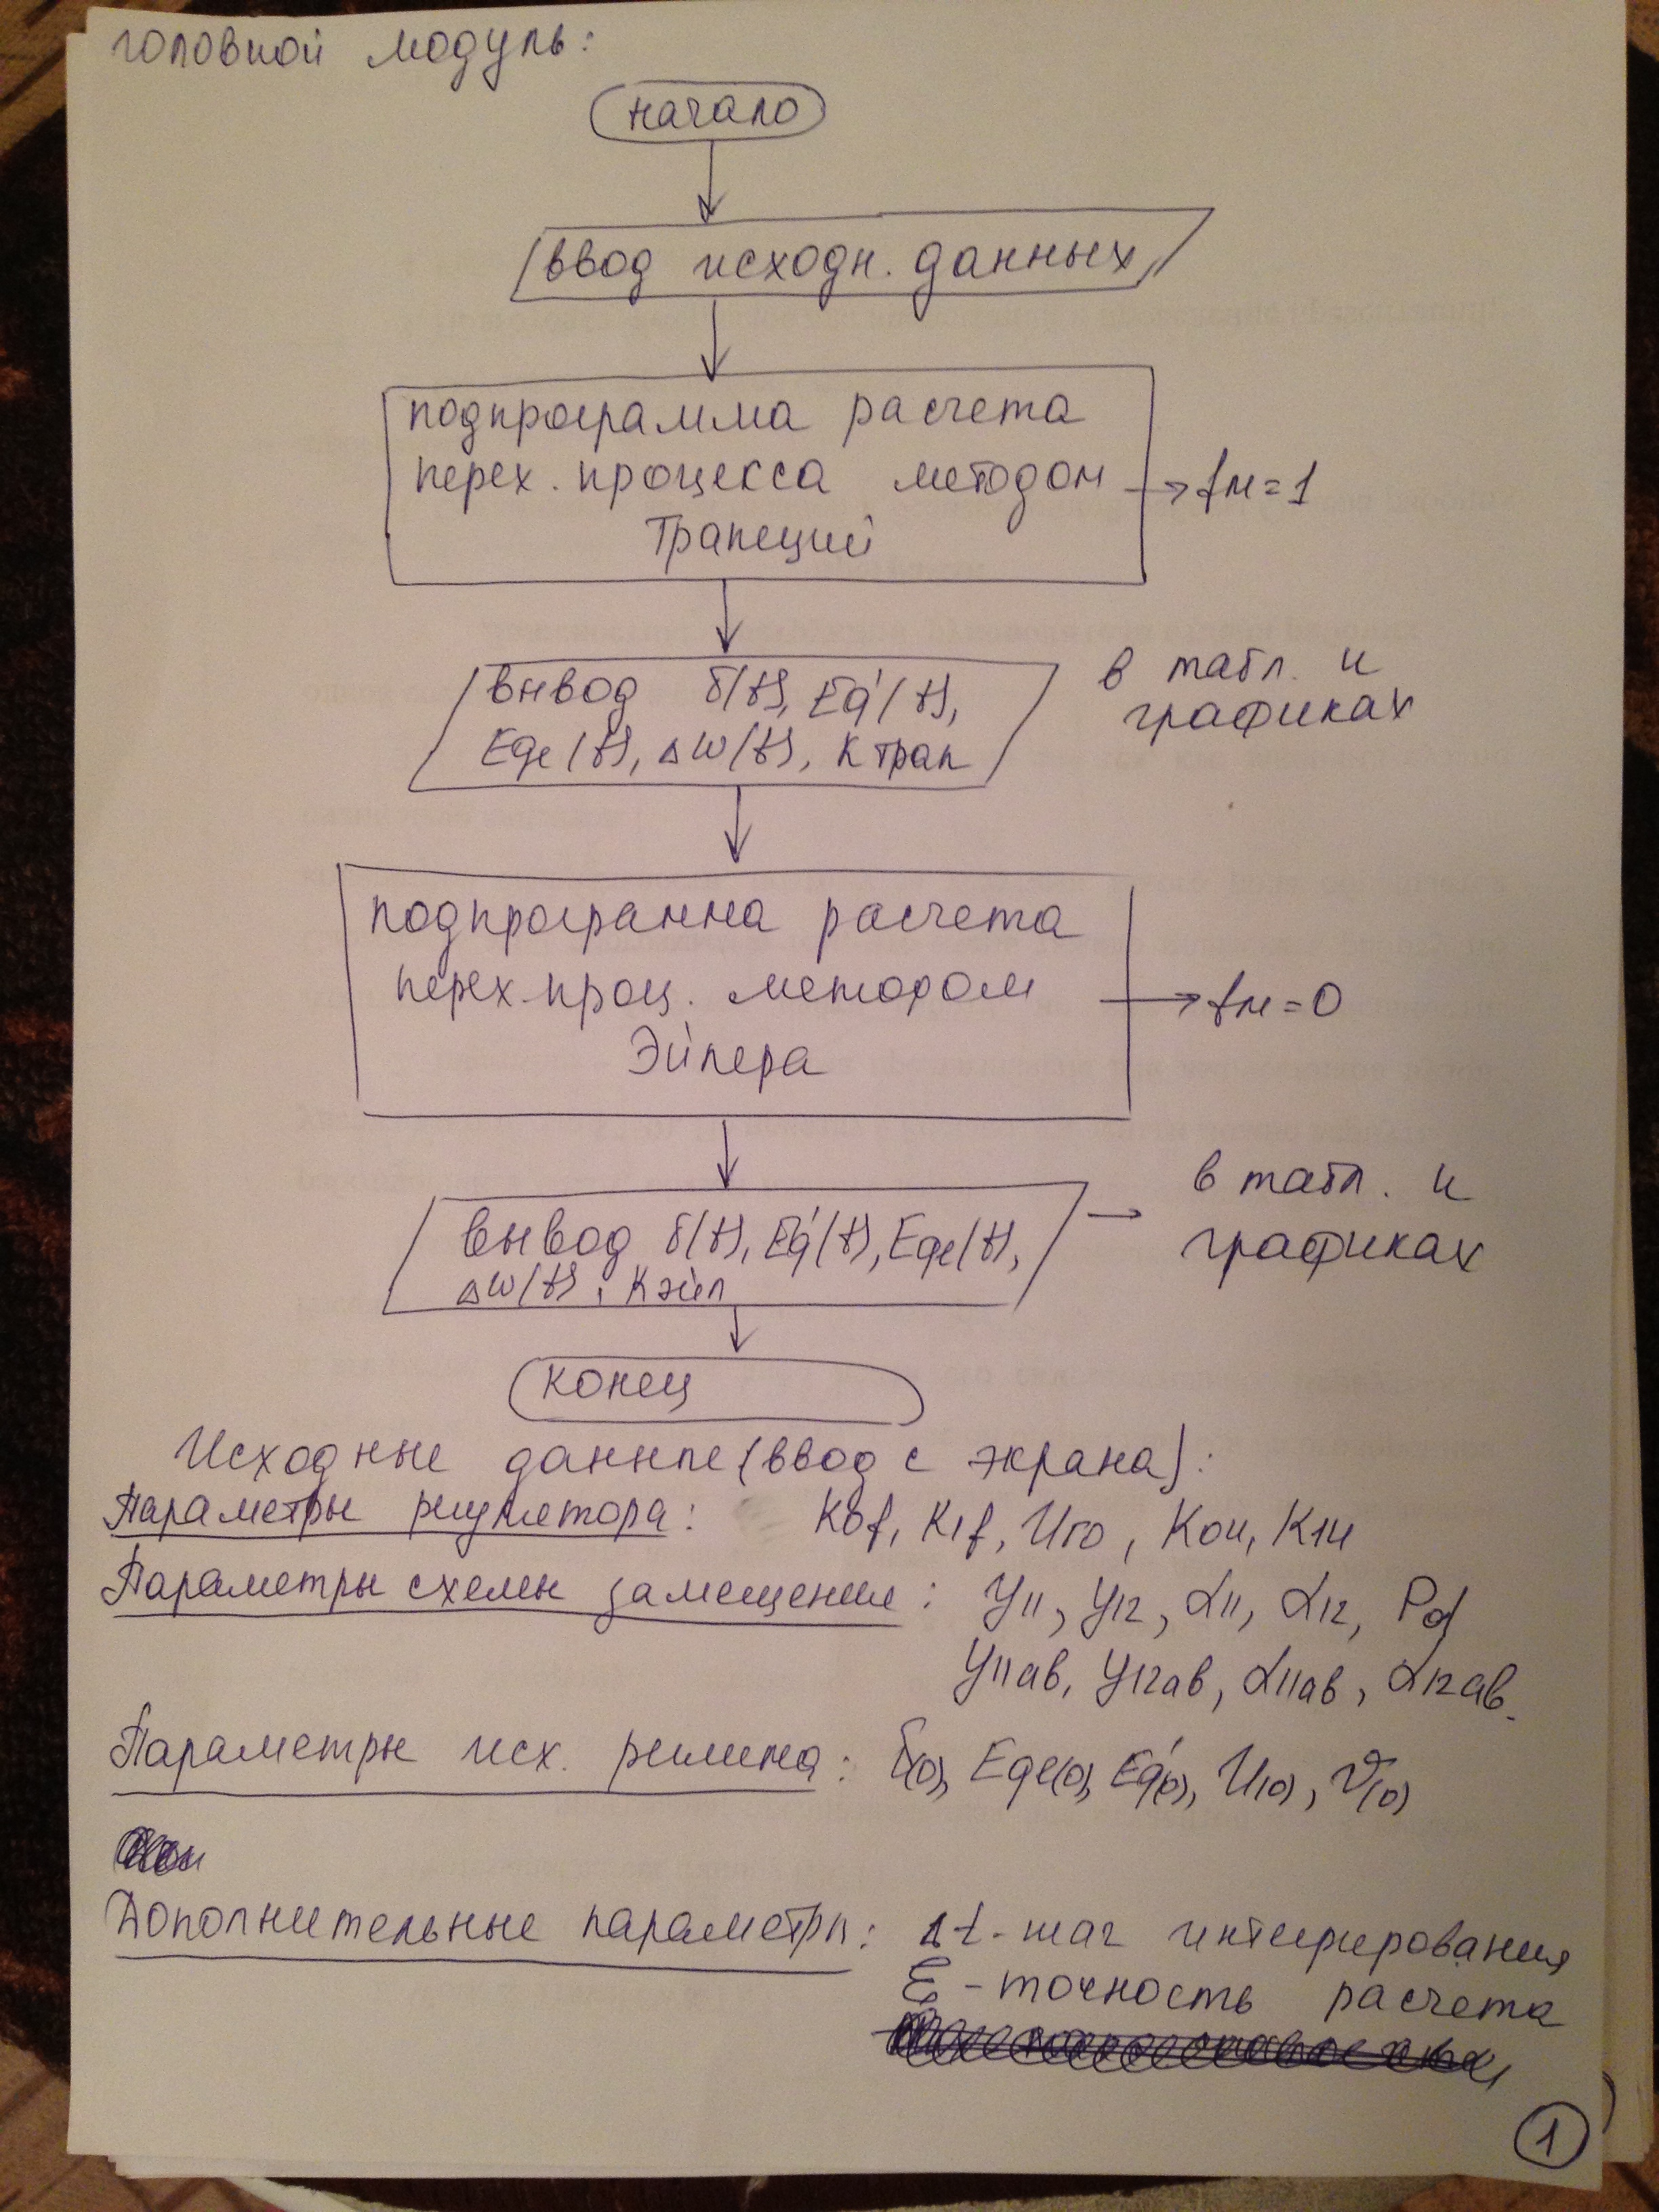 головной модуль:
начало
ввод исходн. данных
подпрограмма расчета
перех. процесса методом
Трапеций
→ fм=1
вывод δ(t), Eq'(t),
Eqe(t), Δω(t), К трап
в табл. и
графиках
подпрограмма расчета
перех. проц. методом
Эйлера
→ fм=0
вывод δ(t), Eq'(t), Eqe(t),
Δω(t), К эйл
→ в табл. и
графиках
конец
Исходные данные (ввод с экрана):
Параметры регулятора: K0f, K1f, Uго, K0u, K1u
Параметры схемы замещения: y11, y12, α11, α12, Pd
y11ав, y12ав, α11ав, α12ав.
Параметры исх. режима: δ(0), Eqe(0), Eq'(0), U(0), V(0)
Дополнительные параметры: Δt - шаг интегрирования
ξ - точность расчета
1